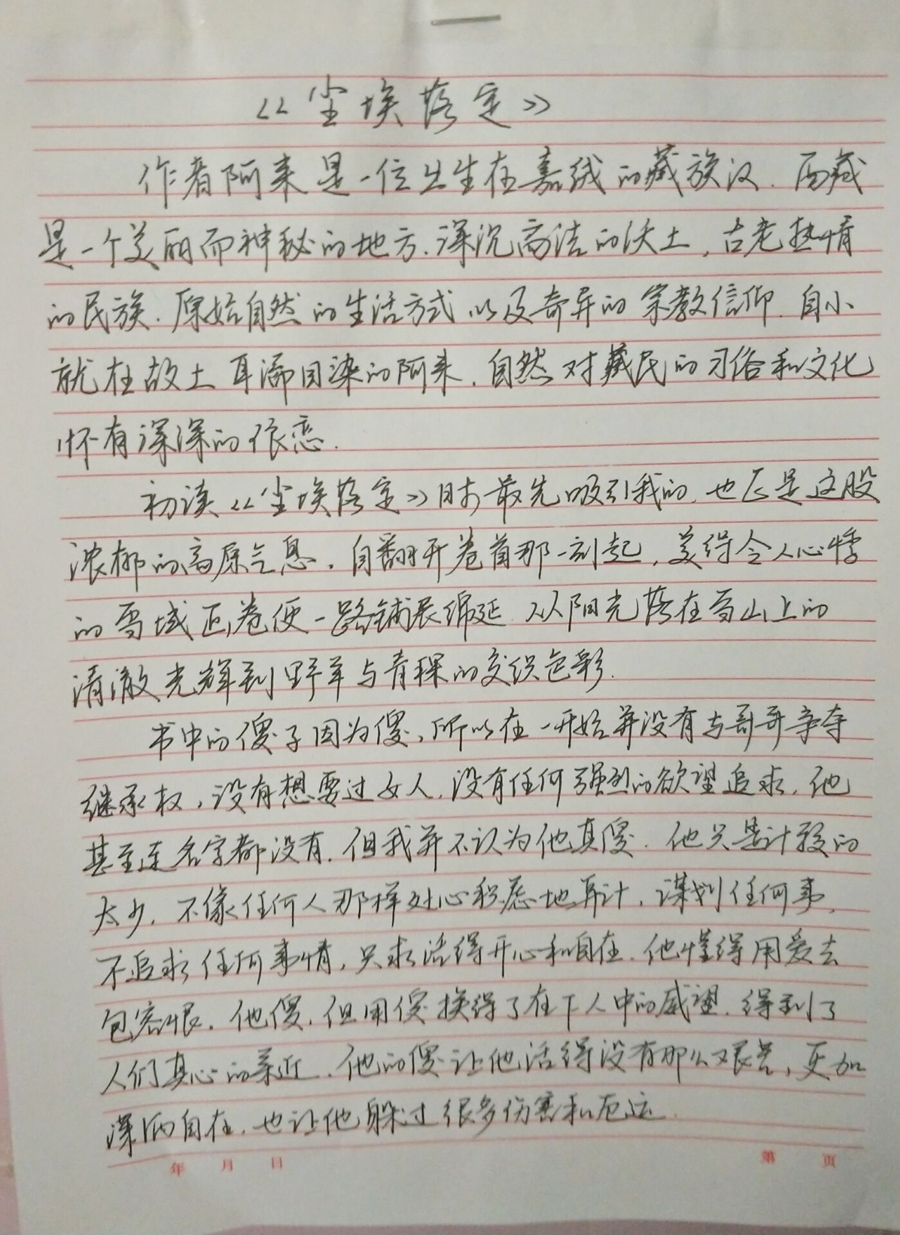 《尘埃落定》
作者阿来是一位出生在嘉绒的藏族汉.西藏
是一个美丽而神秘的地方.深沉高洁的沃土,古老热情
的民族.原始自然的生活方式以及奇异的宗教信仰.自小
就在故土耳濡目染的阿来.自然对藏民的习俗和文化
怀有深深的依恋.
初读《尘埃落定》时最先吸引我的.也正是这股
浓郁的高原气息.自翻开卷首那一刻起,美得令人心悸
的雪域画卷便一路铺展绵延.从阳光落在雪山上的
清澈光辉到野羊与青稞的交织色彩.
书中的傻子因为傻,所以在一开始并没有与哥哥争夺
继承权,没有想要过女人.没有任何强烈的欲望追求.他
甚至连名字都没有.但我并不认为他真傻.他只是计较的
太少.不像任何人那样处心积虑地算计,谋划任何事.
不追求任何事情,只求活得开心和自在.他懂得用爱去
包容恨.他傻.但用傻换得了在下人中的威望.得到了
人们真心的亲近.他的傻让他活得没有那么艰苦,更加
自在.也让他躲过很多伤害和厄运.
年 月 日
第 页